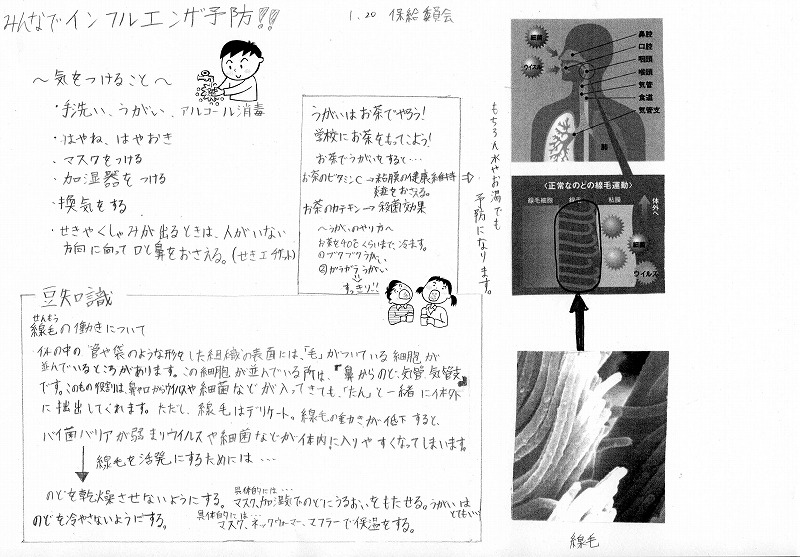 みんなでインフルエンザ予防!!
1.20 保給委員会
～気をつけること～
・手洗い、うがい、アルコール消毒
・はやね、はやおき
・マスクをつける
・加湿器をつける
・換気をする
・せきやくしゃみが出るときは、人がいない
方向に向って口と鼻をおさえる。(せきエチケット)
うがいはお茶でやろう!
学校にお茶をもってこよう!
お茶でうがいをすると…
お茶のビタミンC→粘膜の健康維持
炎症をおさえる。
お茶のカテキン→殺菌効果
～うがいのやり方～
お茶を40℃くらいまで、冷ます。
①ブクブクうがい
②ガラガラうがい
すっきり!!
もちろん水やお湯でも
予防になります。
細菌
ウイルス
鼻腔
口腔
咽頭
喉頭
気管
食道
気管支
肺
<正常なのどの線毛運動>
線毛細胞
線毛
粘膜
体外へ
細菌
ウイルス
線毛
豆知識
せんもう
線毛の働きについて
体の中の管や袋のような形をした組織の表面には、「毛」がついている細胞が
並んでいるところがあります。この細胞が並んでいる所は、『鼻からのど、気管、気管支』
です。このもの役割は、鼻や口からウイルスや細菌などが入ってきても、「たん」と一緒に体外
に排出してくれます。ただし、線毛はデリケート。線毛の動きが低下すると、
バイ菌バリアが弱まりウイルスや細菌などが体内に入りやすくなってしまいます。
線毛を活発にするためには…
のどを乾燥させないようにする。
具体的には…
マスク、加湿などでのどにうるおいをもたせる。うがいは
とてもいい
のどを冷やさないようにする。
具体的には…
マスク、ネックウォーマー、マフラーで保温をする。